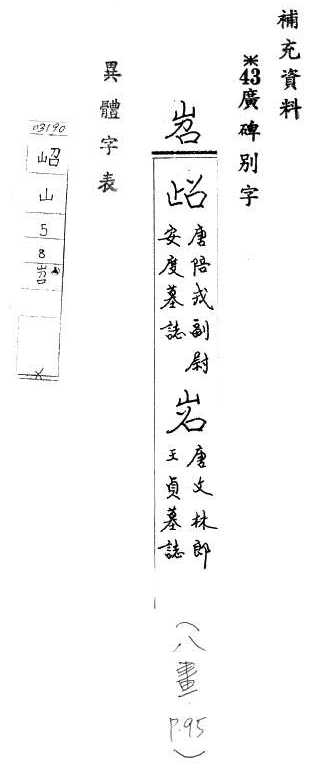 補充資料
※43廣碑別字
岧
唐陪戎副尉
安度墓誌
唐文林郎
王貞墓誌
(八畫 P.95)
異體字表
03190
岹
山
5
8
岧